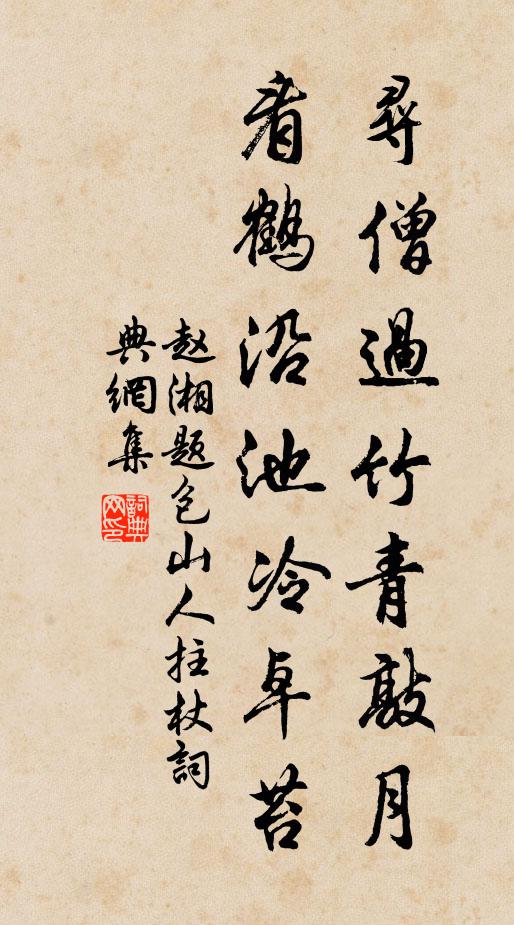 尋僧過竹青敲月
看鶴沿池冷卓苔
赵湘题包山人拄杖詞
典網集
詞典網印